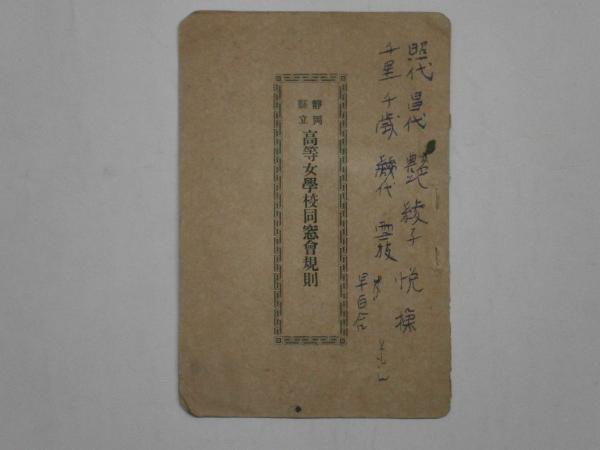 照代 昌代 艶 綾子 悦 操
千里 千歳 幾代 雪枝
早百合
静岡縣立
高等女學校同窓會規則